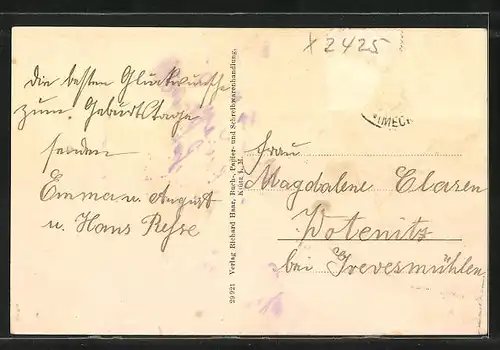 X 2425
IMECK
Die besten Glückwünsche
zum Geburtstage
senden
Emma u. August
u. Hans Reyse
29 921 Verlag Richard Haar, Buch-, Papier- und Schreibwarenhandlung,
Klütz i. M.
Frau
Magdalene Clasen
Wotenitz
bei Grevesmühlen